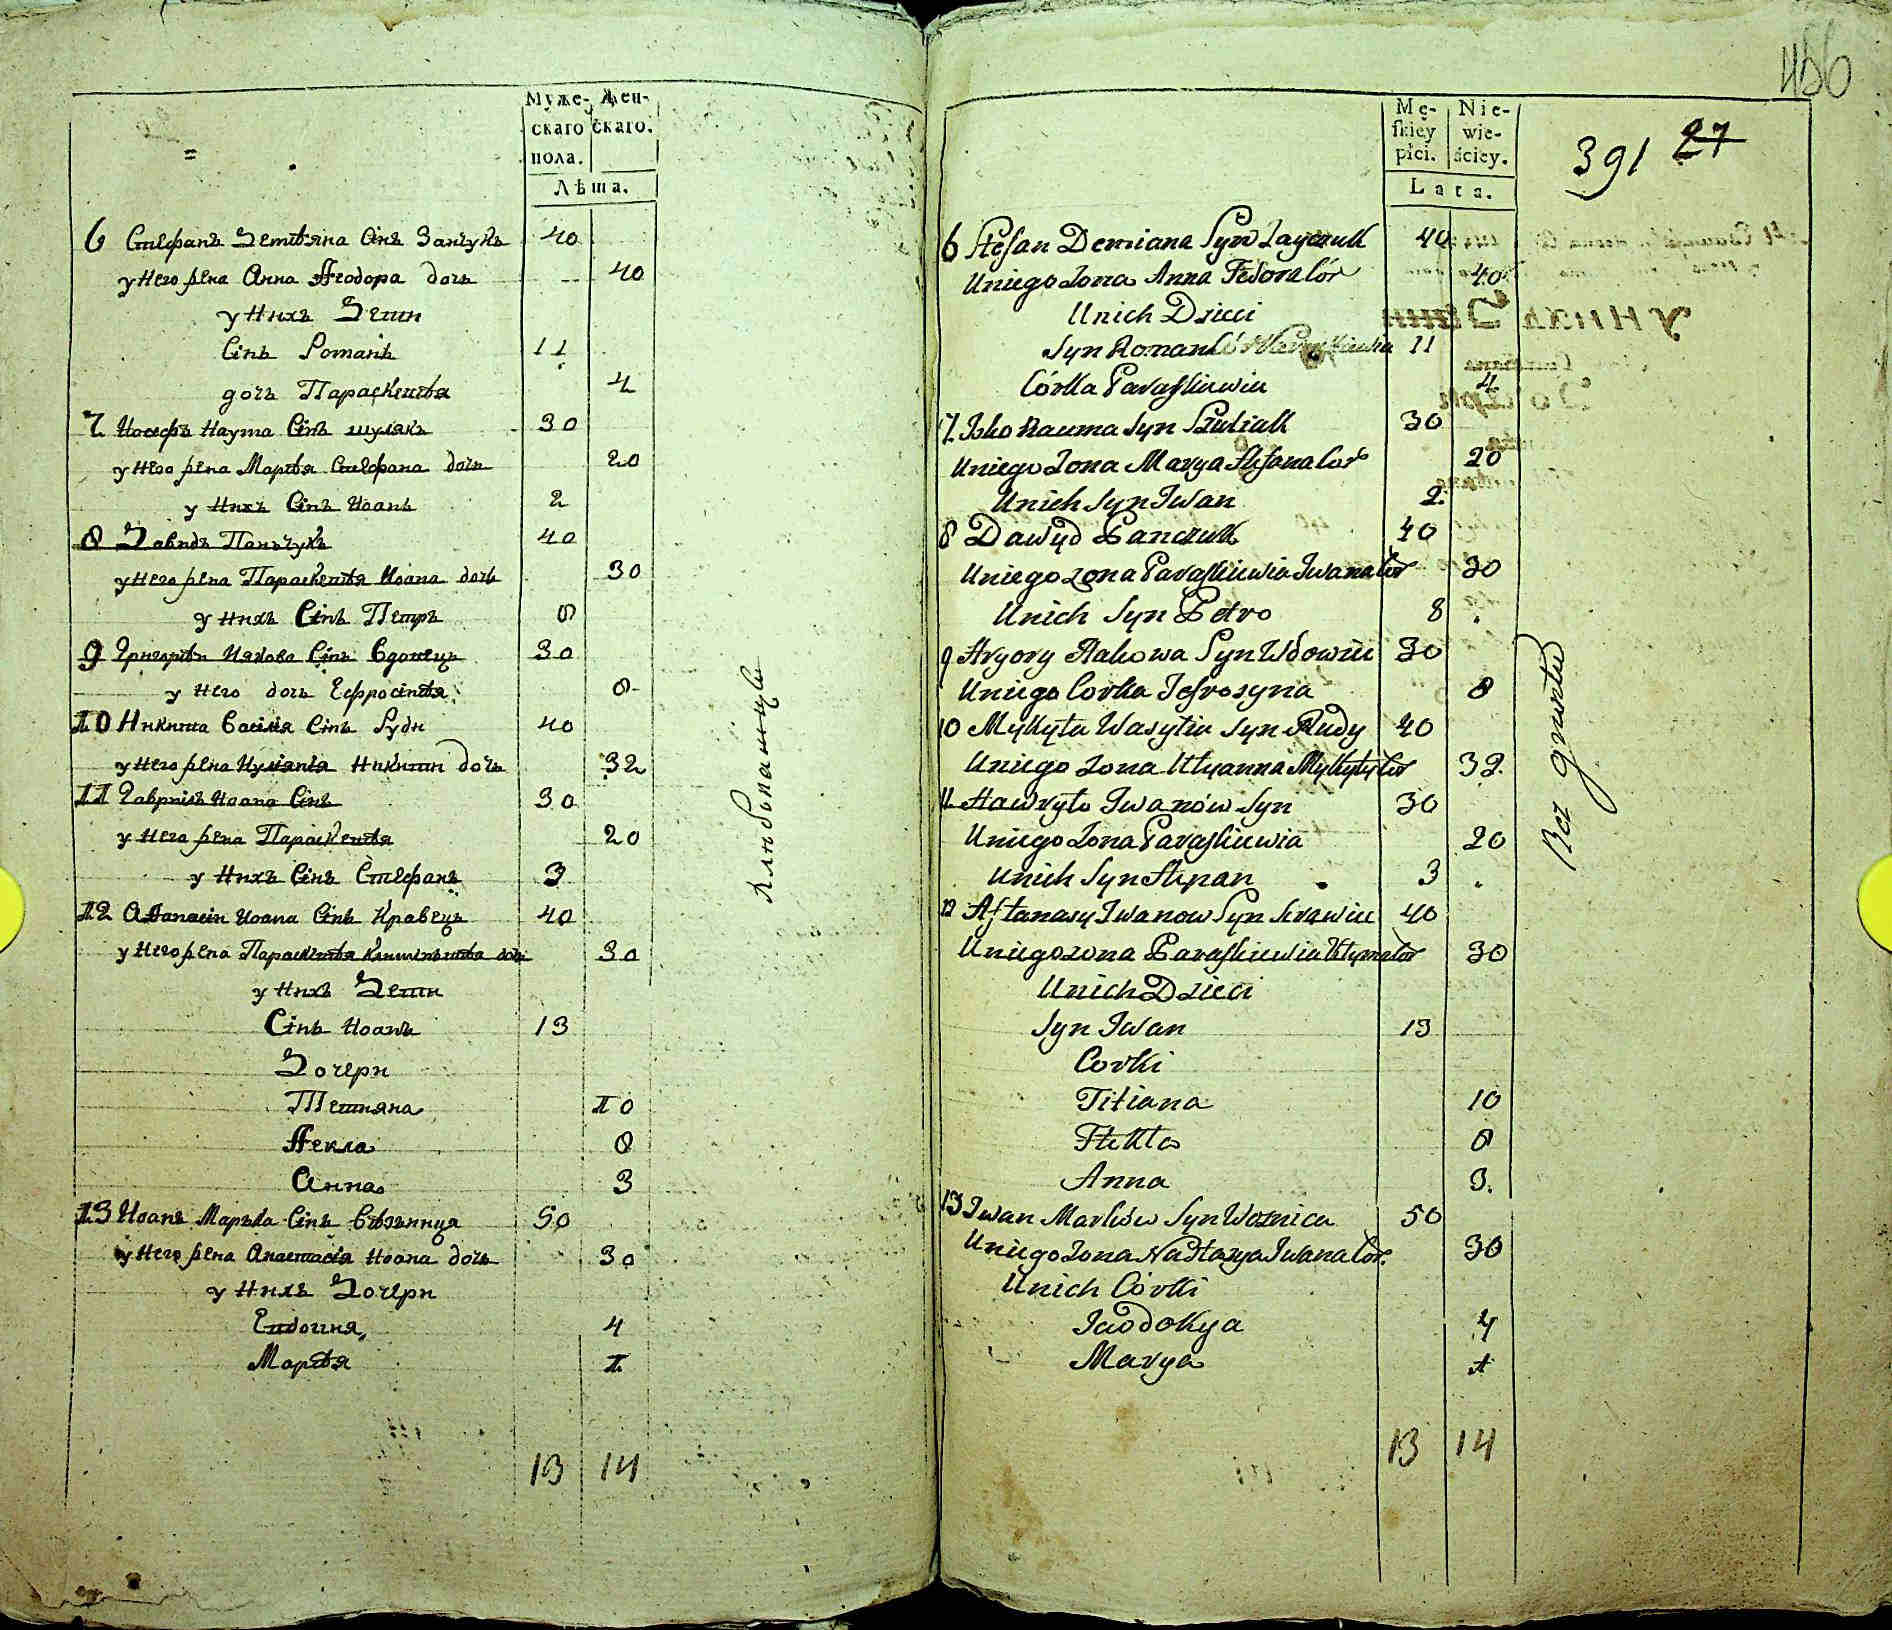 Муже- Жен-
скаго скаго.
пола.
Лѣта.
6 Стефанъ Демѣяна Сінъ Заичукъ 40
у Него жена Анна Ѳеодора дочь 40
у Нихъ Дети
Сінъ Романъ 11
дочь Параскевѣя 4
7 Иосефъ Наума Сінъ шулякъ 30
у Него жена Марѣя Стефана дочь 20
у Нихъ Сінъ Иоанъ 2
8 Давидъ Панчукъ 40
у Него жена Параскевѣя Иоана дочь 30
у Нихъ Сінъ Петръ 8
9 Григорѣи Иякова Сінъ Вдовецъ 30
у Него дочь Ефросінѣя 8
10 Никита Васілія Сінъ Руди 40
у Него жена Иулиянія Никити дочь 32
11 Гавриілъ Иоана Сінъ 30
у Него жена Параскевѣя 20
у Нихъ Сінъ Стефанъ 3
12 Аѳанасіи Иоана Сінъ Кравецъ 40
у Него жена Параскевѣя дочь 30
у Нихъ Дети
Сінъ Иоанъ 13
Дочери
Тетяна 10
Ѳекла 8
Анна 3
13 Иоанъ Маръка Сінъ 50
у Него жена Анастасія Иоана дочь 30
у Нихъ Дочери
4
Марѣя 1
13 14
Mę- Nie-
skiey wie-
płci. ściey.
Lata.
456
391 27
6 Stefan Demiana Syn Zayczuk 40
Uniego Zona Anna Fedora Cór 40
Unich Dzieci
Syn Roman 11
Córka Paraskiewia 4
7. Isko Nauma Syn Szuliak 30
Uniego Zona Marya Stefana Cor 20
Unich Syn Iwan 2
8 Dawyd Panczuk 40
Uniego Zona Paraskiewia Iwana Cor 30
Unich Syn Petro 8
9 Hryory Jakowa Syn Wdowiec 30
Uniego Corka Jefrosyna 8
10 Mykyta Wasylia Syn Rudy 40
Uniego Zona Ulyanna Mykyty Cor 32
11 Hawryło Iwanów Syn 30
Uniego Zona Paraskiewia 20
Unich Syn Stepan 3
12 Aftanasy Iwanow Syn Krawiec 40
Uniego zona Paraskiewia Klyma Cor 30
Unich Dzieci
Syn Iwan 13
Corki
Titiana 10
Tekla 8
Anna 3.
13 Iwan Marków Syn Woznica 50
Uniego Zona Nastazya Iwana Cór. 30
Unich Córki
Jawdokya 4
Marya 1
Bez gruntu
13 14